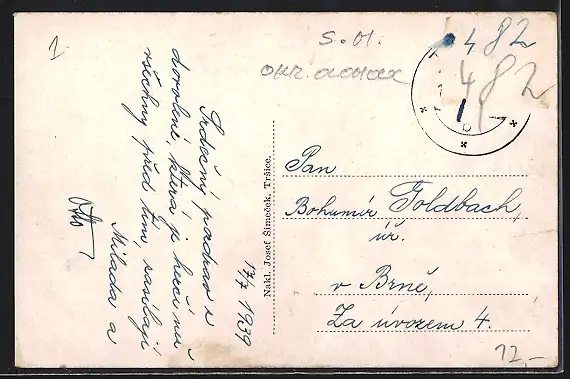 1.
S.-01.
482
482
Srdečný pozdrav z
dovolené, která je hezčí než
všechny před tím, zasílají
Milada a
Otto
17/7 1939
Nakl. Josef Šimeček, Tršice.
Pan
Bohumír Goldbach,
úř.
v Brně,
Za úvozem 4.
12,-